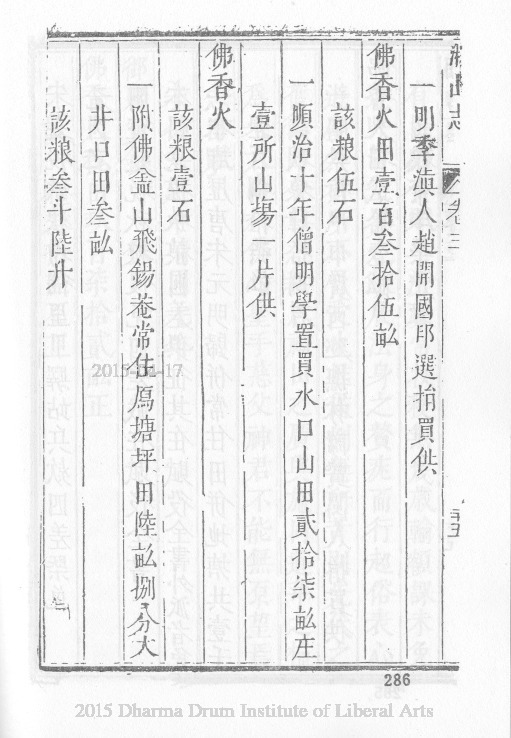 山志 卷三
一明季滇人趙開國邱選捐買供
佛香火田壹百叁拾伍畝
該粮伍石
一順治十年僧明學置買水口山田貳拾柒畝庄
壹所山塲一片供
佛香火
該粮壹石
一附佛盒山飛錫菴常住鳫塘坪田陸畝捌分大
井口田叁畝
該粮叁斗陸升
2015-01-17
286
2015 Dharma Drum Institute of Liberal Arts